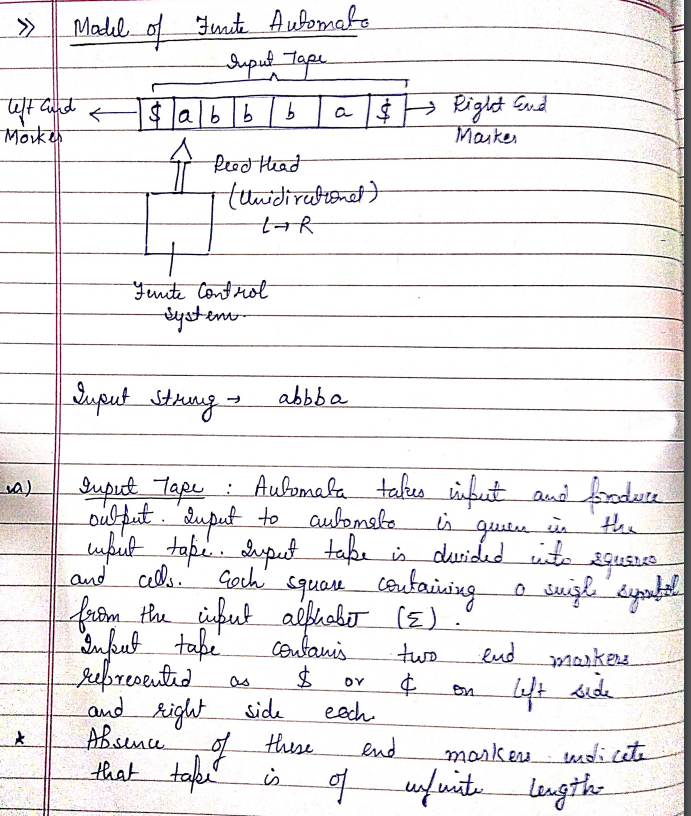 >> Model of Finite Automata
Input Tape
Left End Marker ← $ a b b b a $ → Right End Marker
Read Head
(Unidirectional)
L→ R
Finite Control
System.
Input string → abbba
a) Input Tape : Automata takes input and produce
output. Input to automata is given in the
input tape. Input tape is divided into squares
and cells. Each square containing a single symbol
from the input alphabet (Σ).
Input tape contains two end markers
represented as $ or ¢ on left side
and right side each.
* Absence of these end markers indicate
that tape is of infinite length